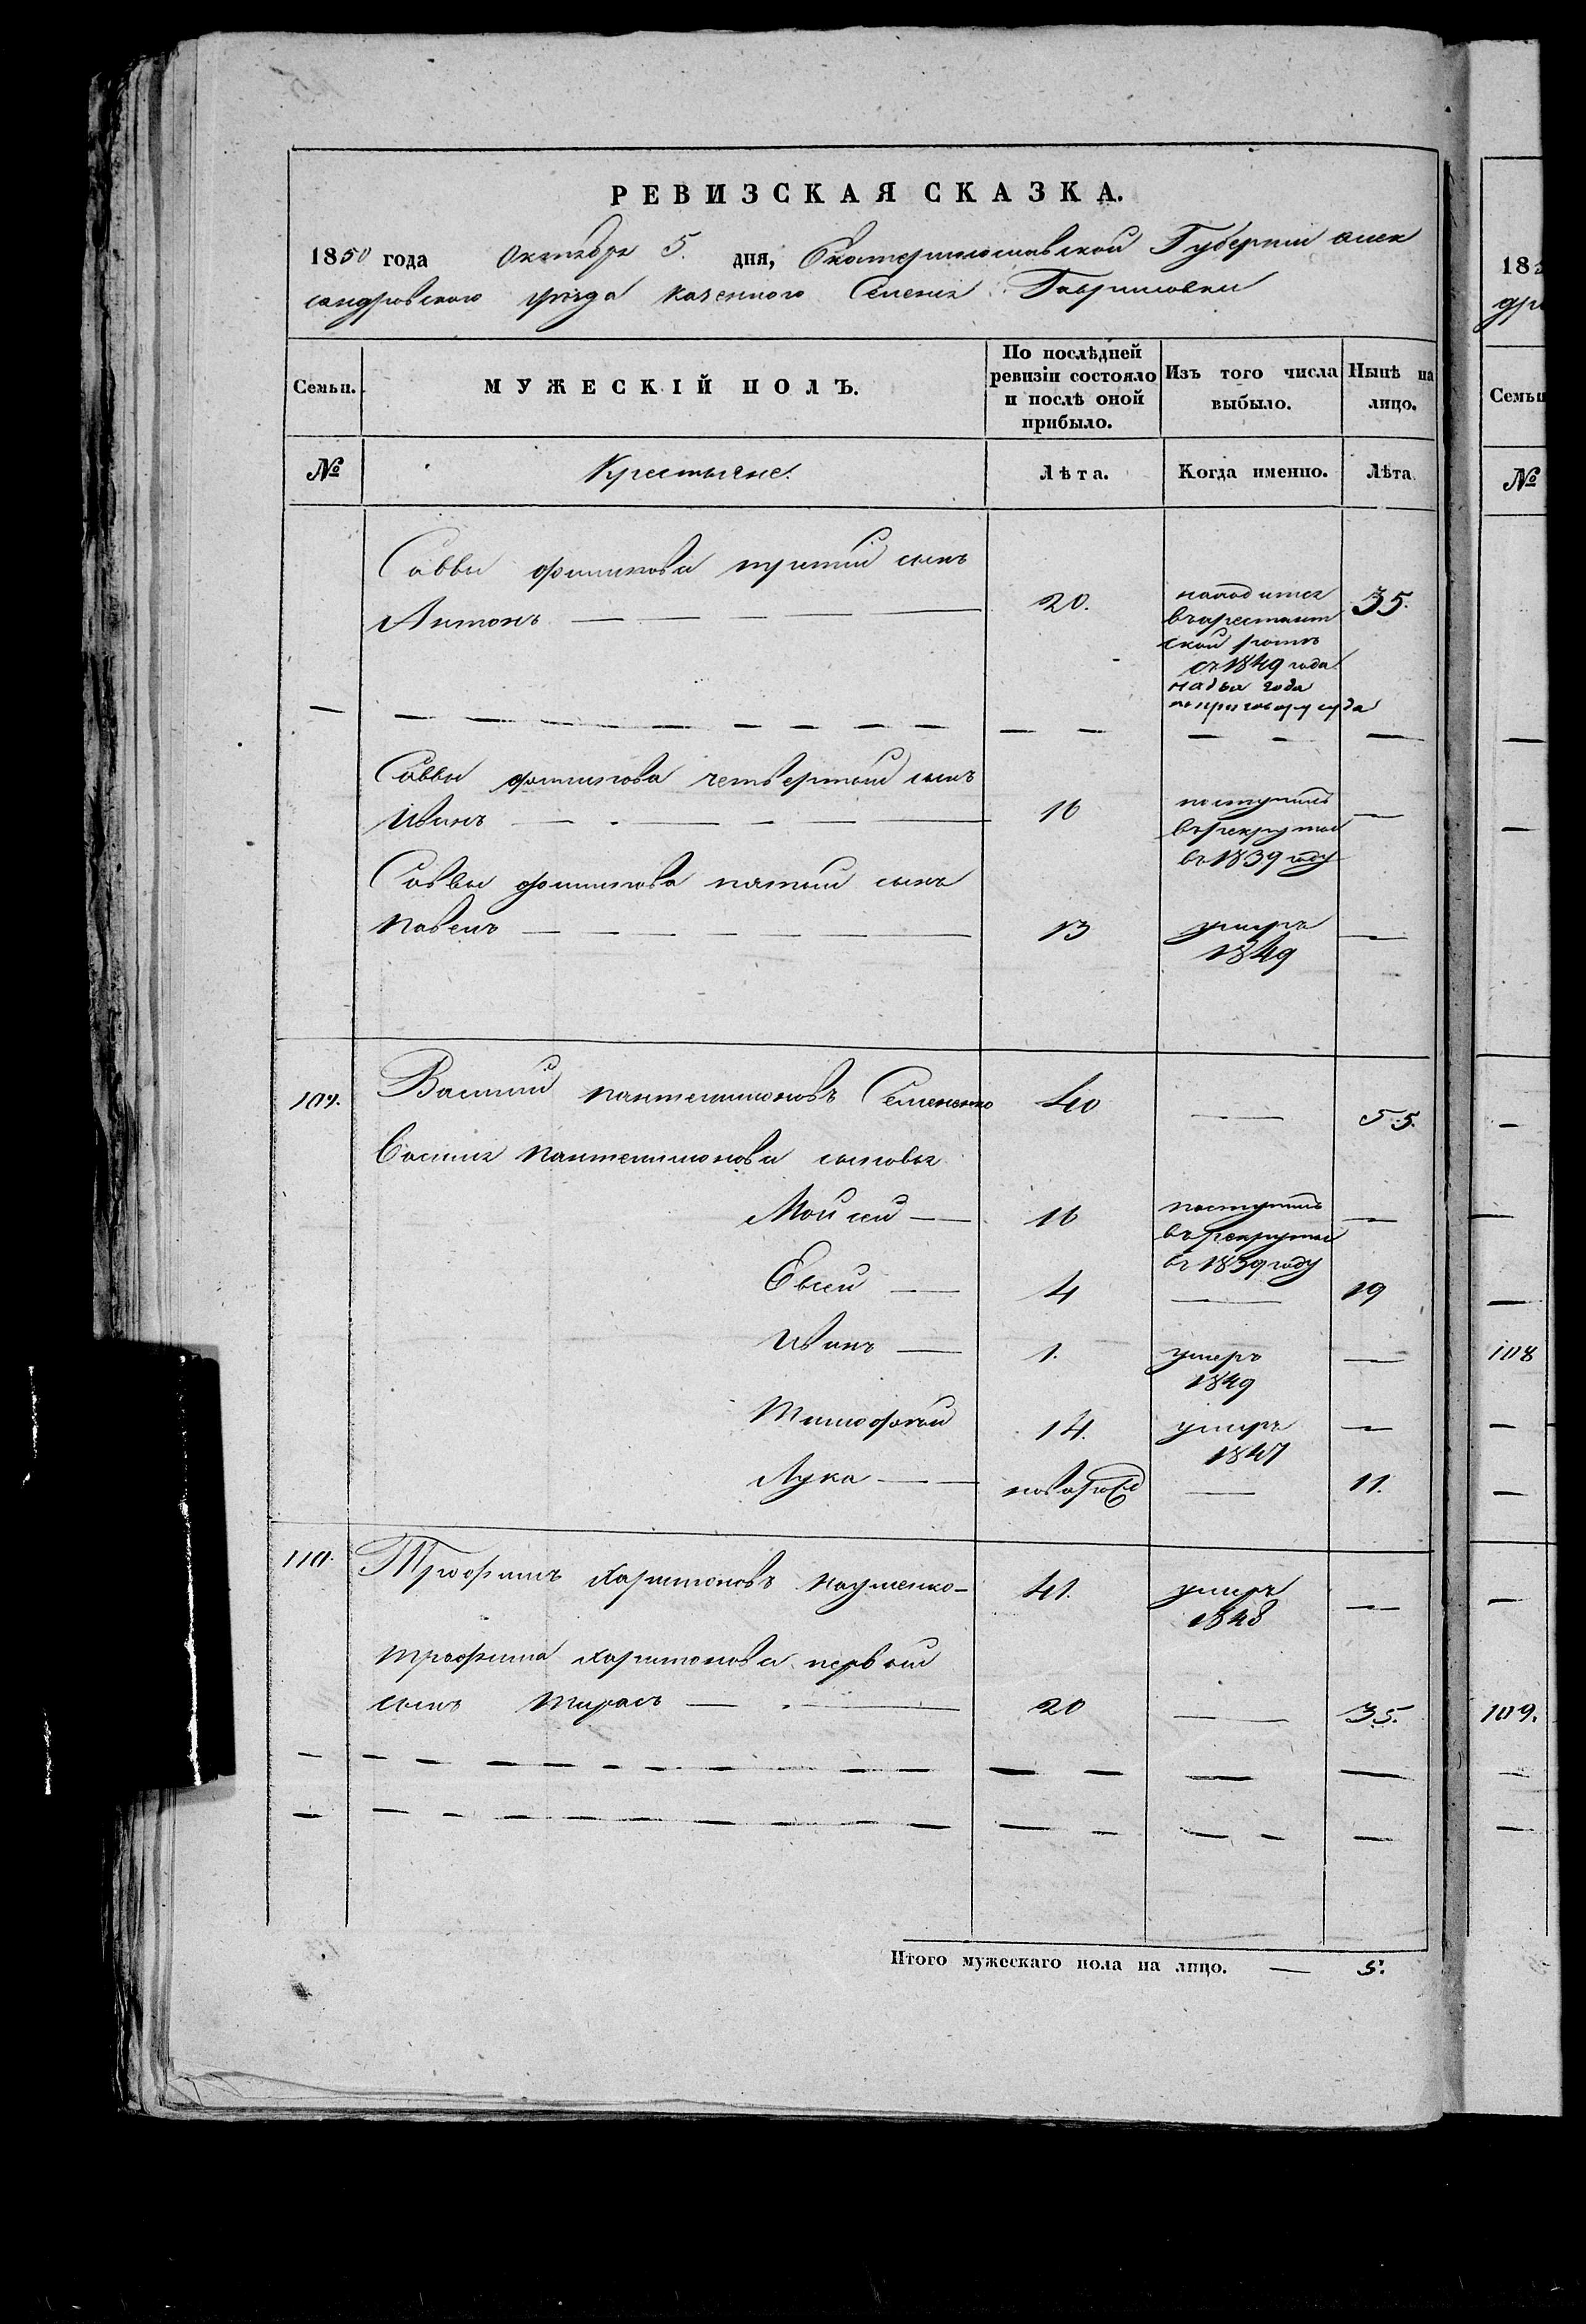 РЕВИЗСКАЯ СКАЗКА.
1850 года Октября 5. дня, Екатеринославской Губернии Алек
сандровского уезда казенного Селения Гавриловки
Семьи.
МУЖЕСКІЙ ПОЛЪ.
По послѣдней ревизіи состояло и послѣ оной прибыло.
Изъ того числа выбыло.
Нынѣ на лицо.
№
Крестьяне.
Лѣта.
Когда именно.
Лѣта
Саввы третий сынъ
Антонъ 20. находится 35.
въ арестант
ской роте
съ 1849 года
на два года
по приговору суда
Саввы четвертый сынъ
Иванъ 16 поступилъ
въ рекруты
въ 1839 году
Саввы пятый сынъ
Павелъ 13 умеръ
1849
109. Василий Пантелимоновъ Семененко 40 55.
Василия Пантелимонова сыновья
Мойсей 16 поступилъ
въ рекруты
въ 1839 году
Евсей 4 19
Иванъ 1. умеръ
1849
Тимофей 14. умеръ
1847
Лука новорож 11.
110. Трофимъ Харитоновъ Науменко 41. умеръ
1848
Трофима Харитонова первый
сынъ Тарасъ 20 35.
Итого мужескаго пола на лицо. — 5.
18
дро
Семьи
№
108
109.